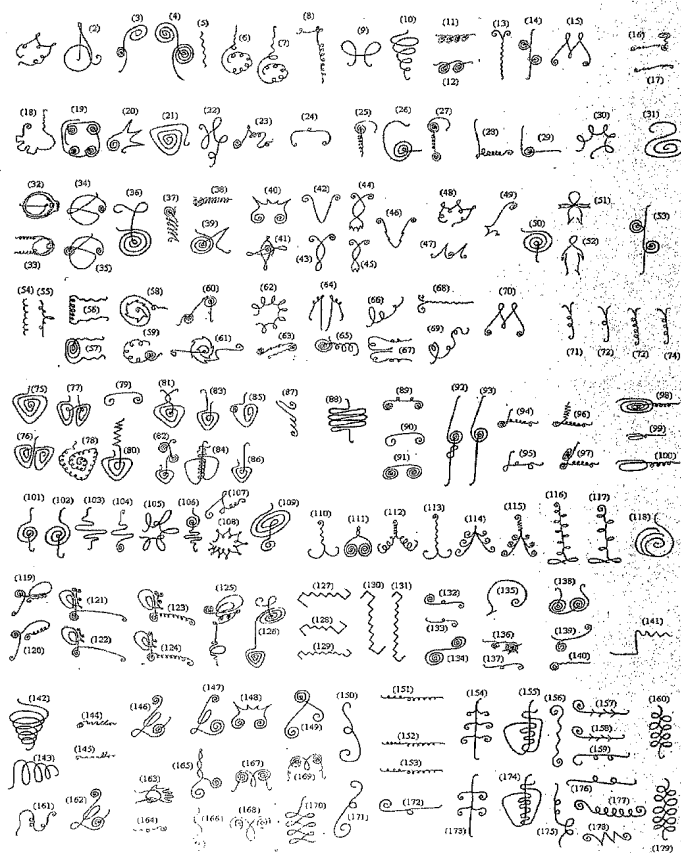 (2) (3) (4) (5) (6) (7) (8) (9) (10) (11) (12) (13) (14) (15) (16) (17)
(18) (19) (20) (21) (22) (23) (24) (25) (26) (27) (28) (29) (30) (31)
(32) (33) (34) (35) (36) (37) (38) (39) (40) (41) (42) (43) (44) (45) (46) (47) (48) (49) (50) (51) (52) (53)
(54) (55) (56) (57) (58) (59) (60) (61) (62) (63) (64) (65) (66) (67) (68) (69) (70) (71) (72) (72) (74)
(75) (76) (77) (78) (79) (80) (81) (82) (83) (84) (85) (86) (87) (88) (89) (90) (91) (92) (93) (94) (95) (96) (97) (98) (99) (100)
(101) (102) (103) (104) (105) (106) (107) (108) (109) (110) (111) (112) (113) (114) (115) (116) (117) (118)
(119) (120) (121) (122) (123) (124) (125) (126) (127) (128) (129) (130) (131) (132) (133) (134) (135) (136) (137) (138) (139) (140) (141)
(142) (143) (144) (145) (146) (147) (148) (149) (150) (151) (152) (153) (154) (155) (156) (157) (158) (159) (160)
(161) (162) (163) (164) (165) (166) (167) (168) (169) (170) (171) (172) (173) (174) (175) (176) (177) (178) (179)